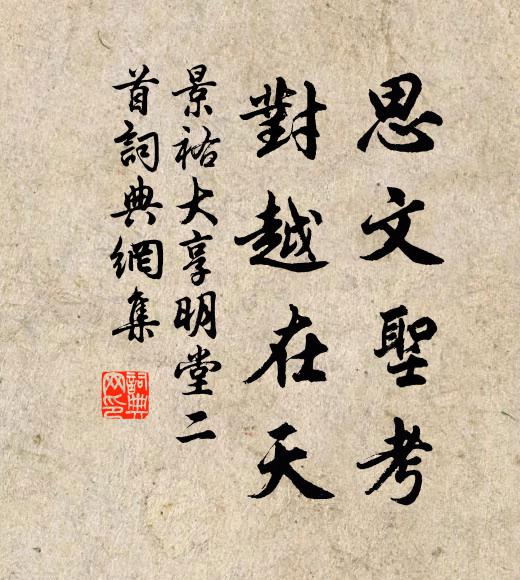 思文聖考
對越在天
景祐大享明堂二
首詞典網集
詞典
网印